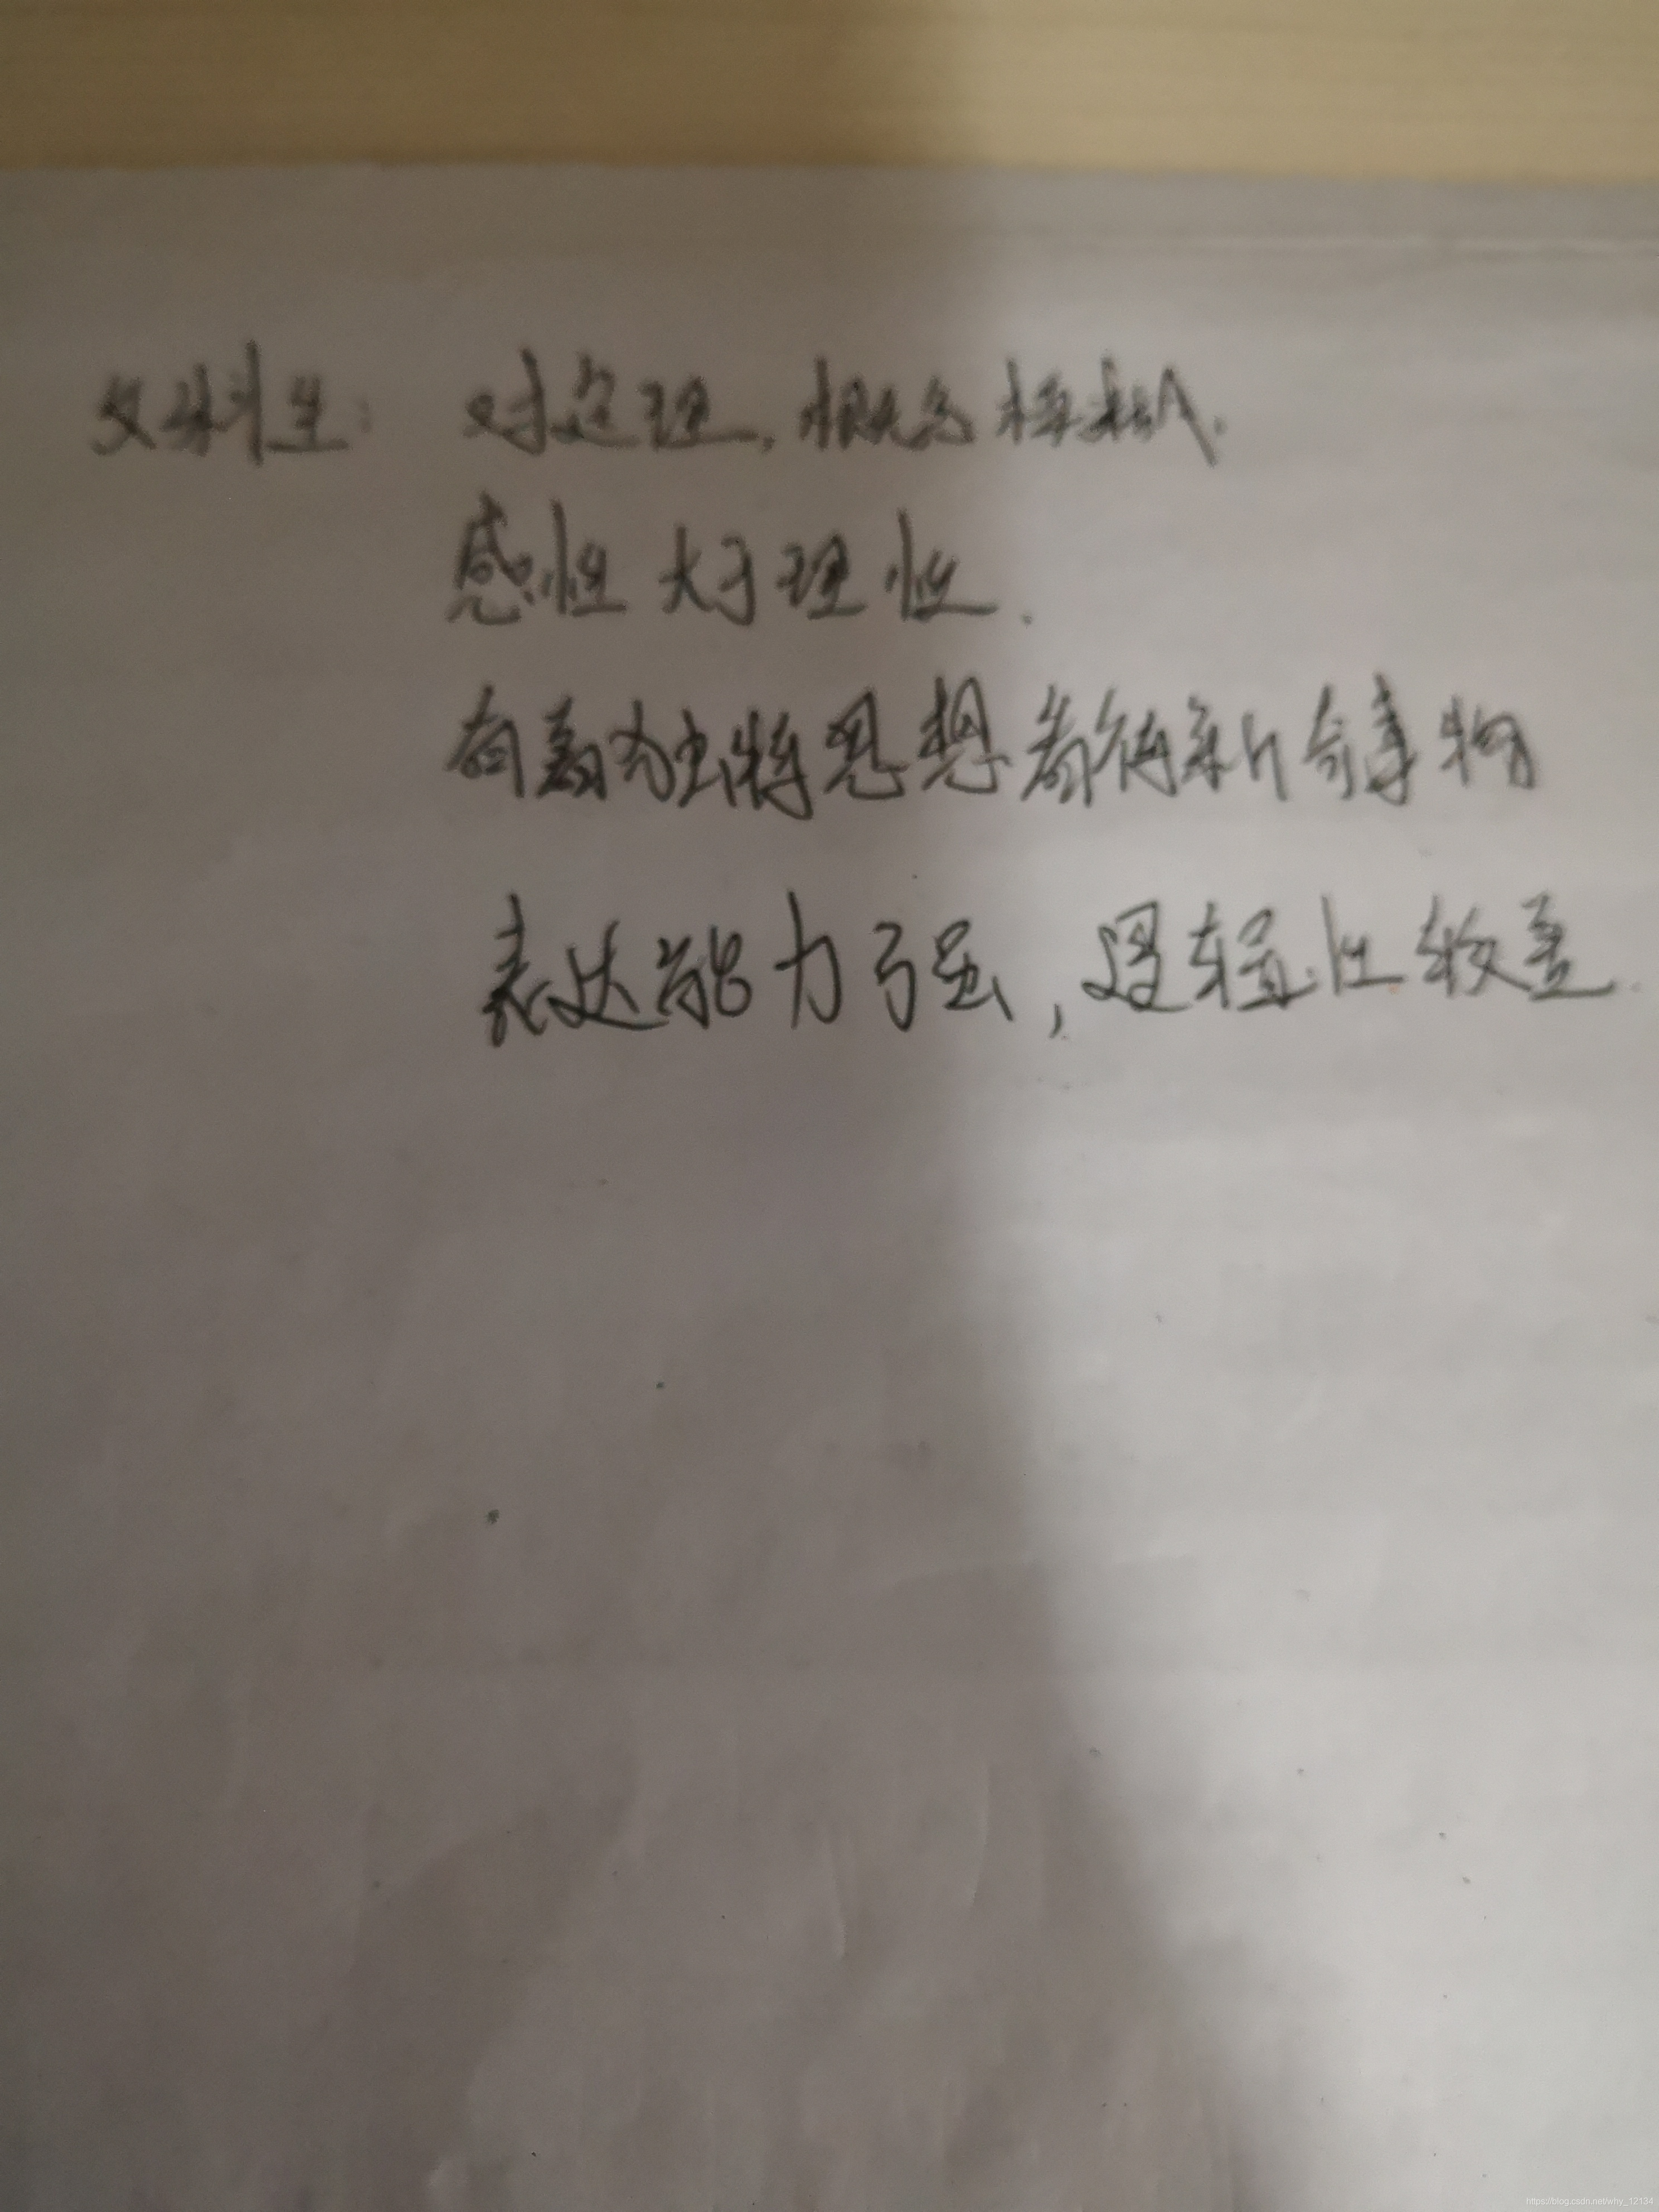 文科生: 对定理,概念模糊.
感性大于理性.
有着独特思想看待新奇事物
表达能力强,逻辑性较差.
https://blog.csdn.net/why_12134